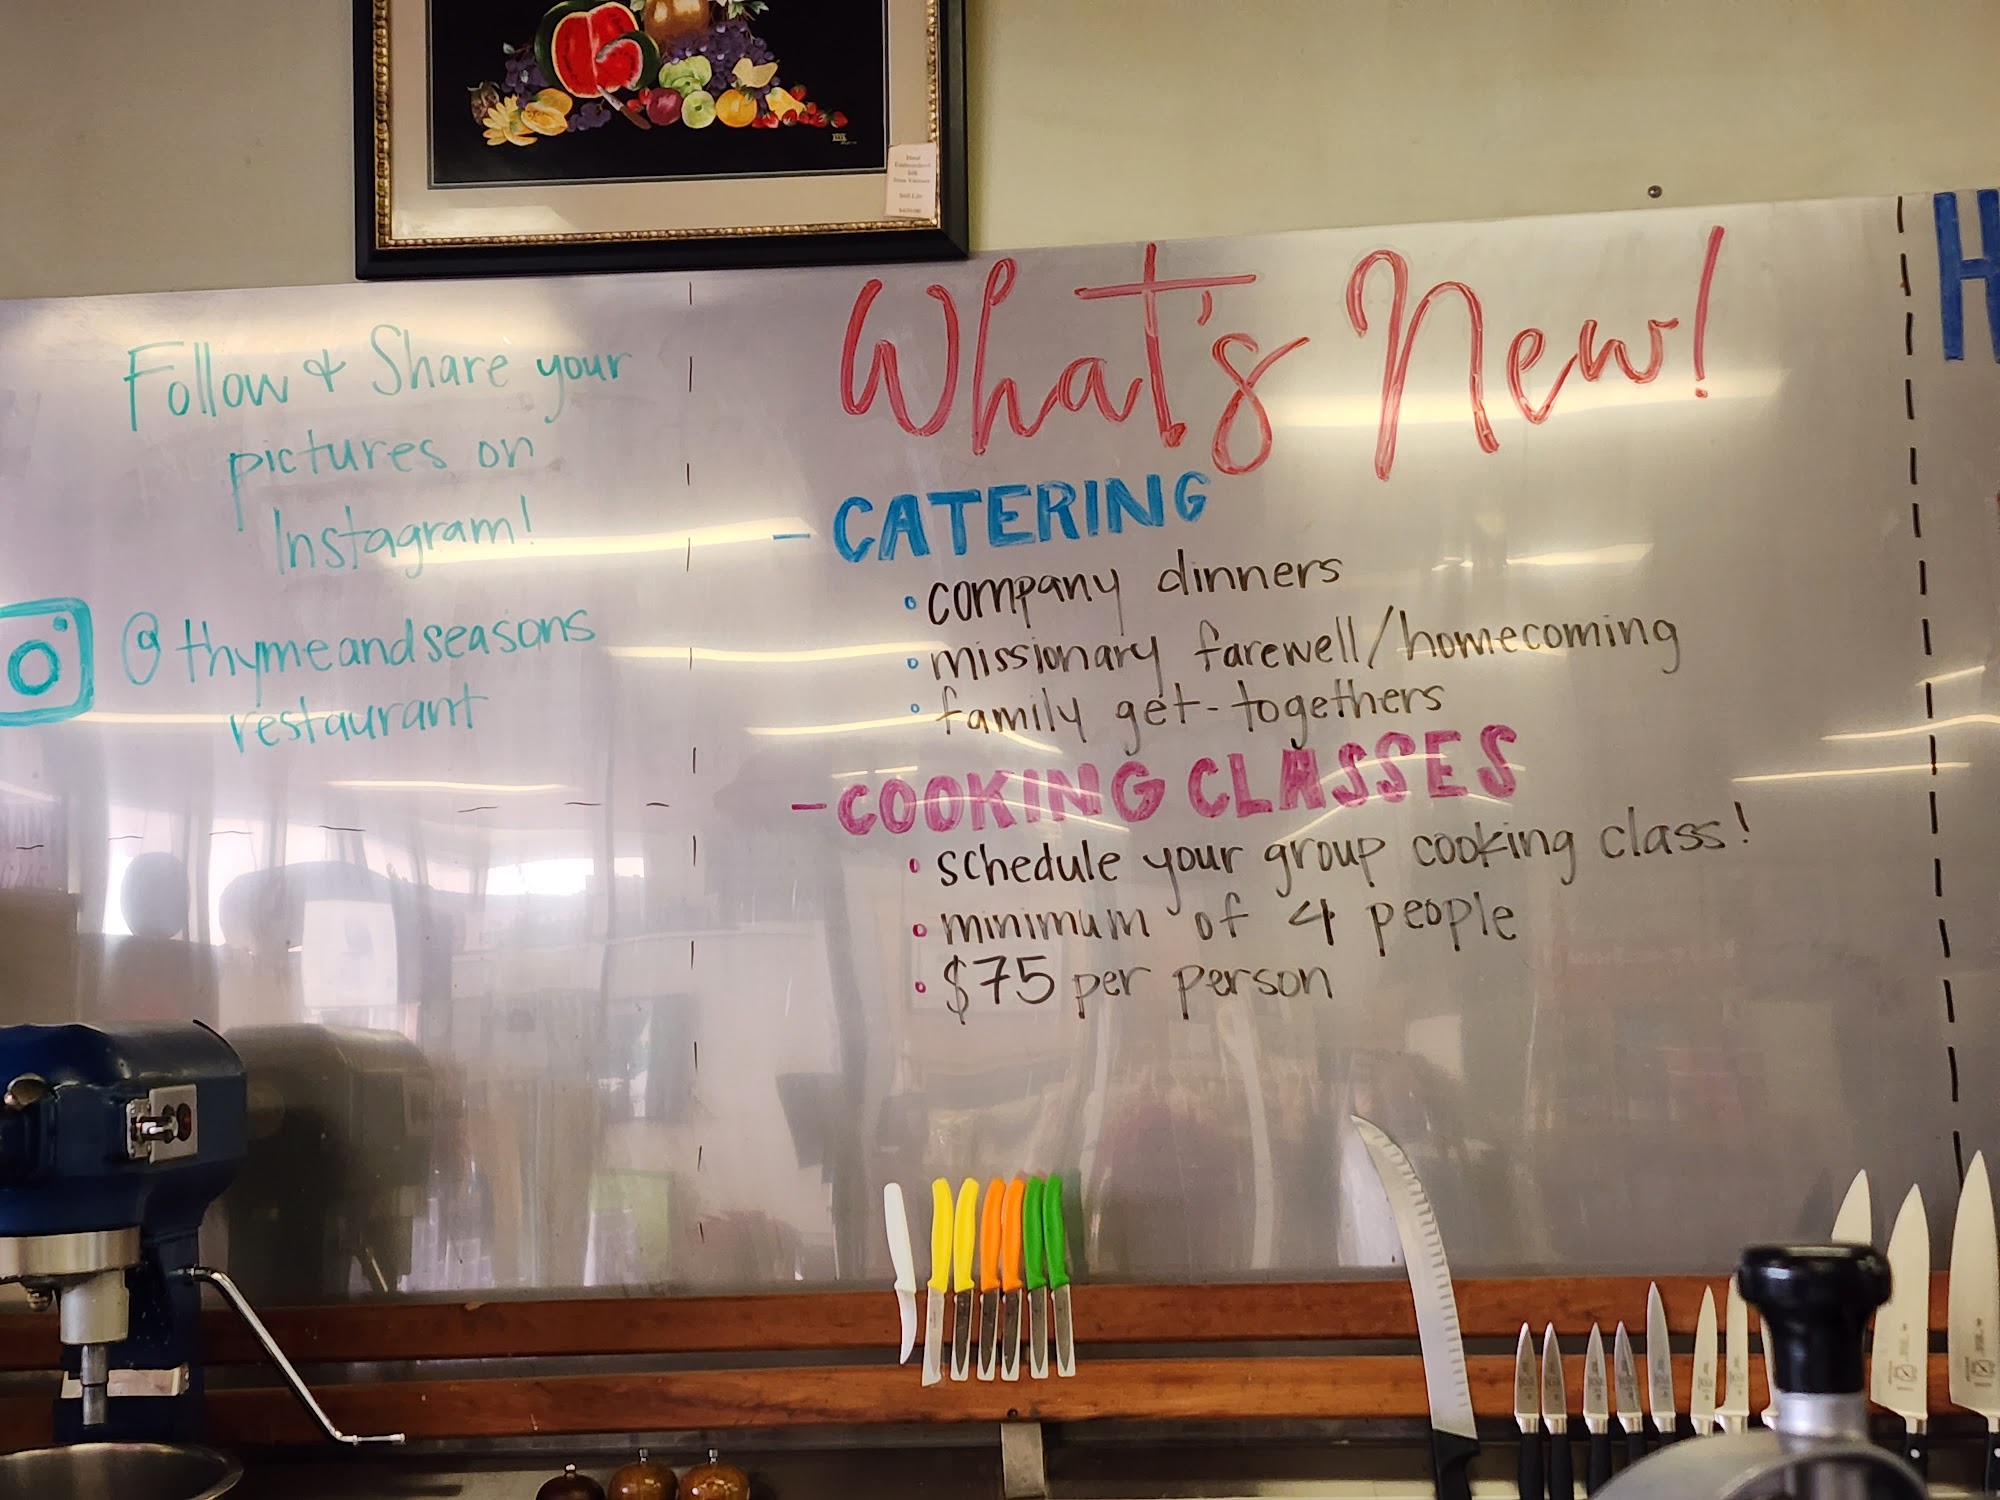 Follow & Share your
pictures on
Instagram!
@thymeandseasons
restaurant
What's New!
- CATERING
• company dinners
• missionary farewell/homecoming
• family get-togethers
- COOKING CLASSES
• schedule your group cooking class!
• minimum of 4 people
• $75 per person
H